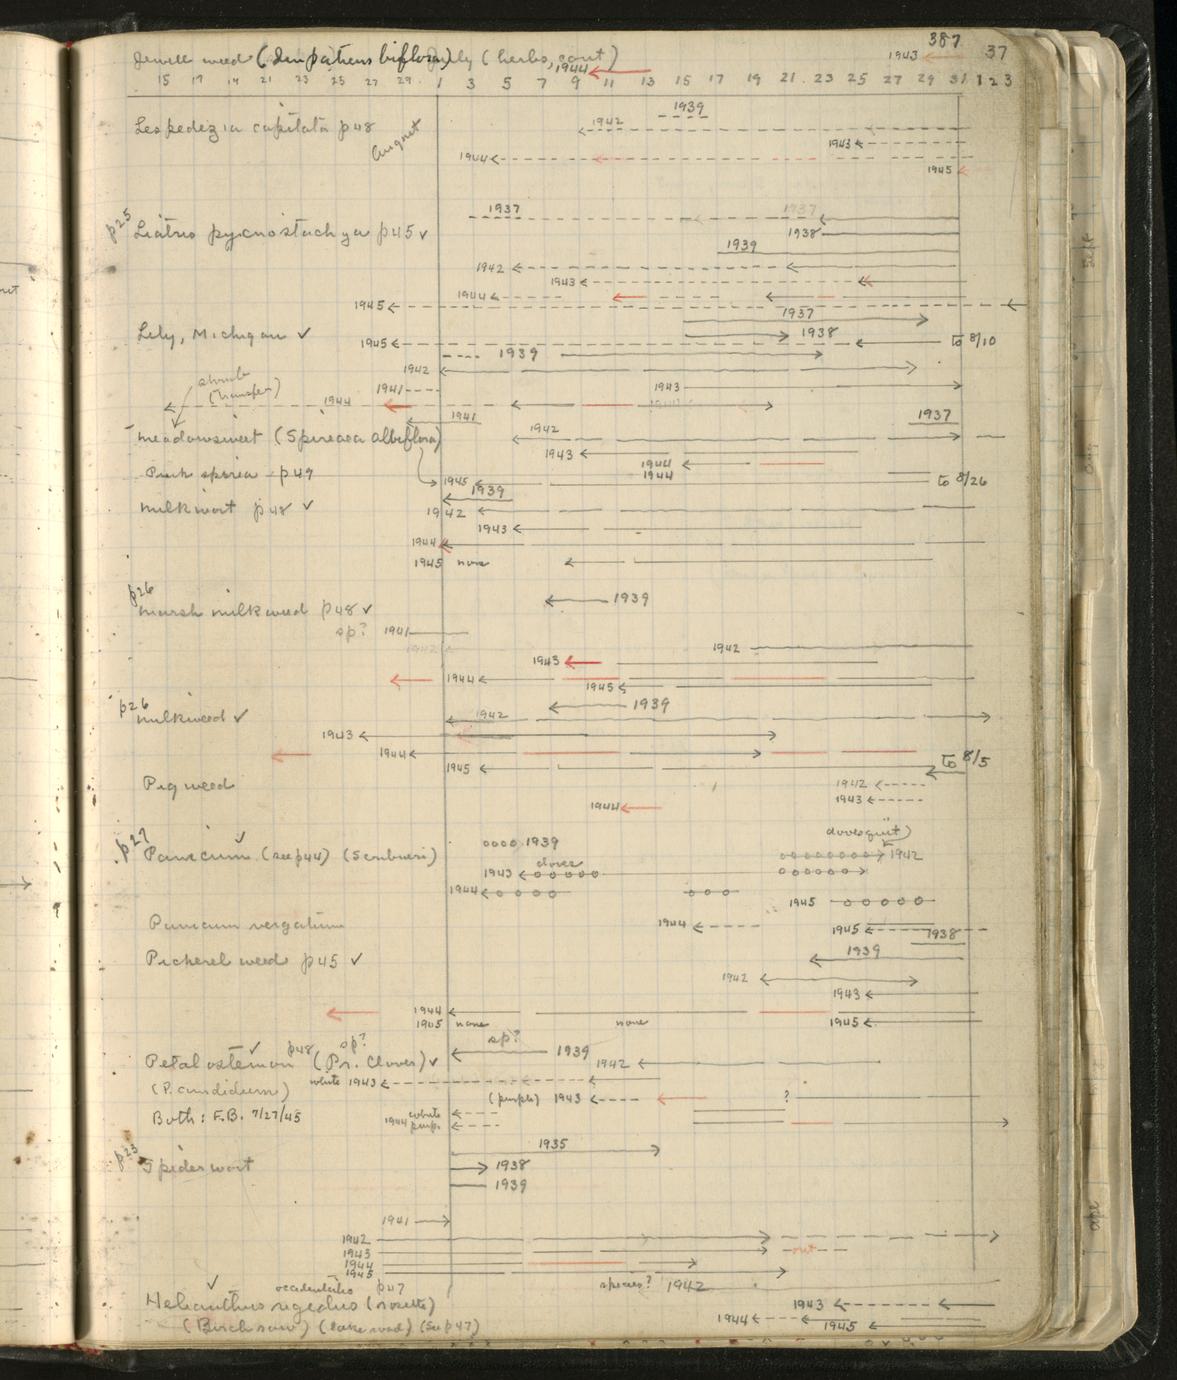 387
Jewell weed (Impatiens biflora) July (herbs, cont) 1943 37
1944
15 17 19 21 23 25 27 29 1 3 5 7 9 11 13 15 17 19 21 23 25 27 29 31 1 2 3
1939
Lespedezia capitata p48 1942
August
1943
1944
1945
p25 1937 1937
Liatris pycnostachya p45 ✓ 1938
1939
1942
1943
1944
1945
1937
Lily, Michigan ✓ 1938
1945 to 8/10
1939
1942
shrub (transfer) 1941 1943
1944
1941 1937
Meadowsweet (Spiraea albiflora) 1942
1943
1944
Pink spirea - p49 1944
1945 to 8/26
1939
Milkwort p48 ✓ 1942
1943
1944
1945 none
p26
Marsh milkweed p48 ✓ 1939
sp? 1941
1942 1942
1943
1944
1945
p26 1939
Milkweed ✓ 1942
1943
1944
1945 to 8/5
Pigweed 1942
1943
1944
p27 ✓ 1939
Panicum (see p44) (Scribneri) 1942
1943
1944
1945
Panicum vergatum 1944 1945
1938
Pickerel weed p45 ✓ 1939
1942
1943
1944
1945 none none 1945
✓ p48 sp? sp?
Petalostemon (Pr. Clover) ✓ 1939 1942
(P. candidum) white 1943
(purple) 1943 ?
Both: F.B. 7/27/45 white
1944 purp.
p23 1935
Spiderwort 1938
1939
1941
1942
1943 out
1944
1945
✓ occidentalis p47 species? 1942
Helianthus rigidus (rosette) 1943
(lake road) (See p47) 1944 1945